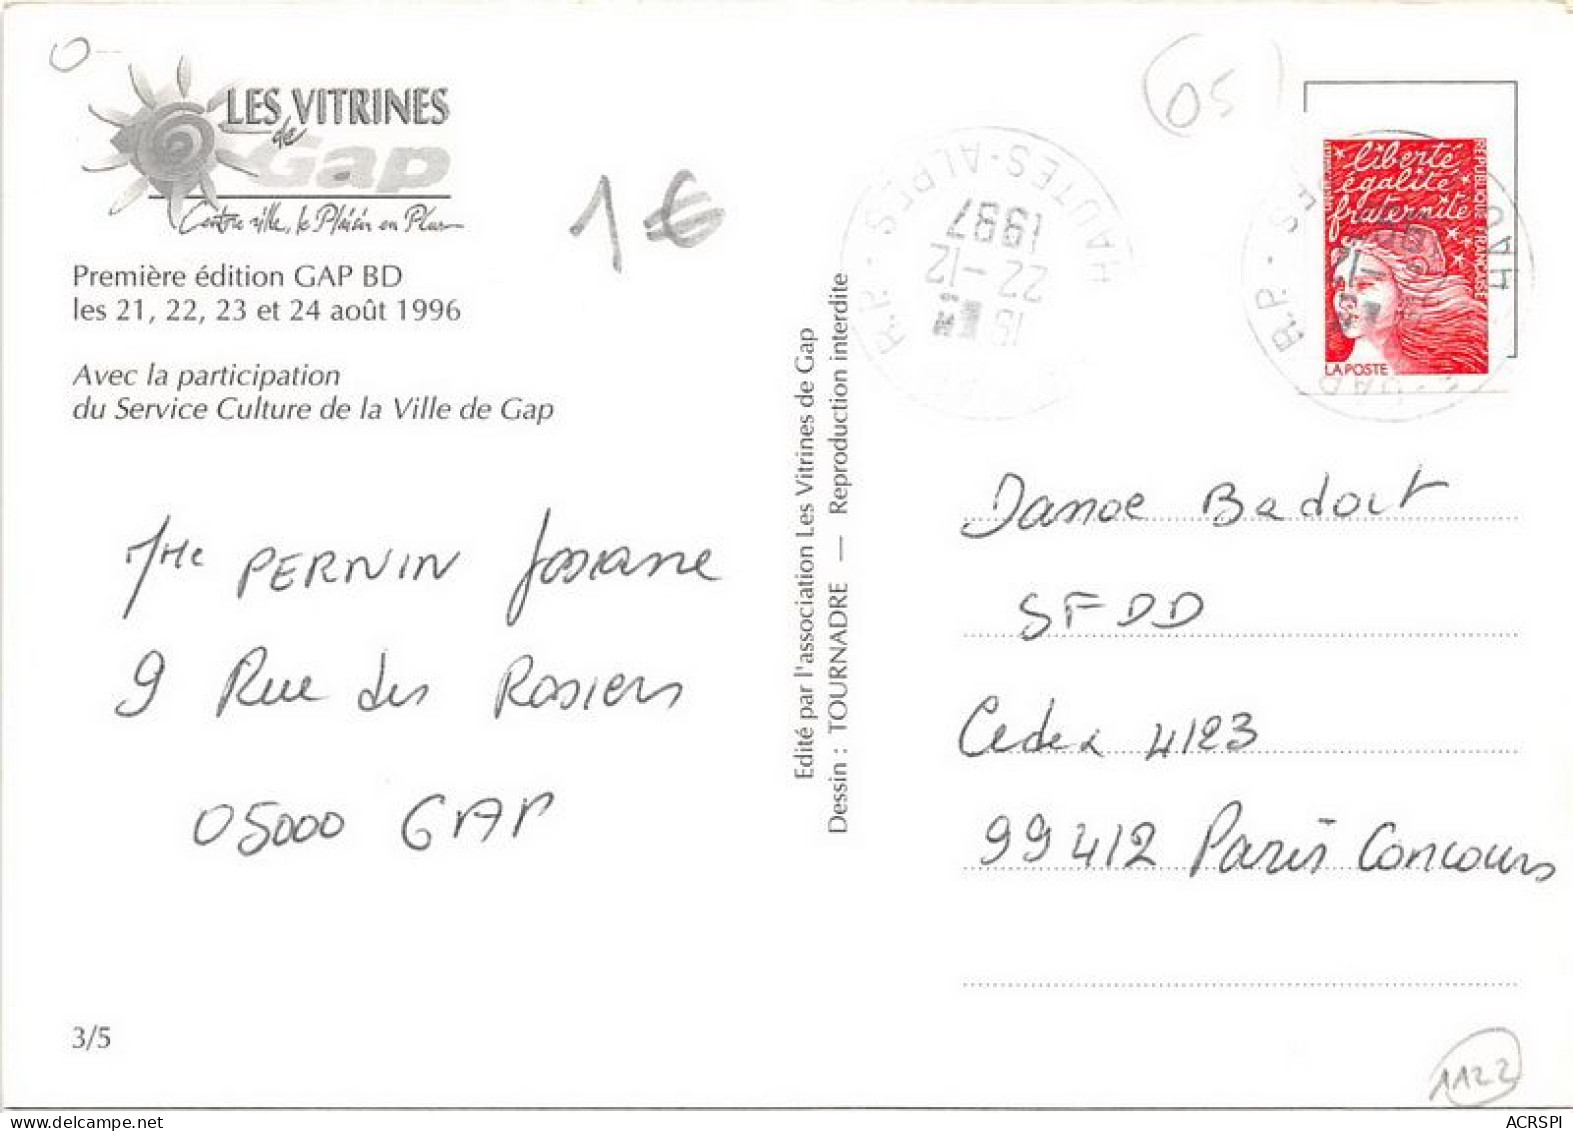 LES VITRINES
de
Gap
Centre ville, le Plaisir en Plus
Première édition GAP BD
les 21, 22, 23 et 24 août 1996
Avec la participation
du Service Culture de la Ville de Gap
1 €
05
HAUTES-ALPES
22-12
1997
R.P.
liberté
égalité
fraternité
REPUBLIQUE FRANÇAISE
LA POSTE
GAP
R.P.
Edité par l'association Les Vitrines de Gap
Dessin : TOURNADRE — Reproduction interdite
Mme PERNIN Josiane
9 Rue des Rosiers
05000 GAP
Danoe Badoit
SFDD
Cedex 4123
99412 Paris Concours
3/5
1122
ACRSPI